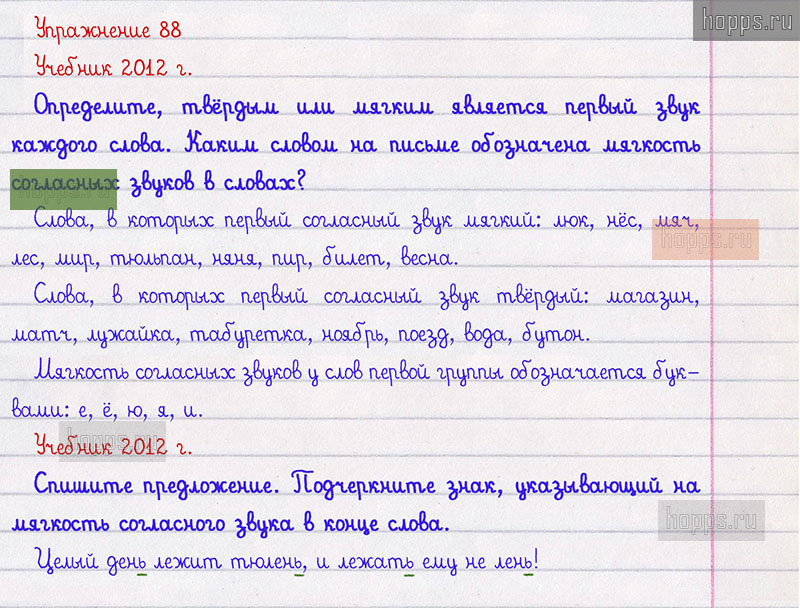 hopps.ru
Упражнение 88
Учебник 2012 г.
Определите, твёрдым или мягким является первый звук
каждого слова. Каким словом на письме обозначена мягкость
согласных звуков в словах?
hopps.ru
Слова, в которых первый согласный звук мягкий: люк, нёс, мяч,
hopps.ru
лес, мир, тюльпан, няня, пир, билет, весна.
Слова, в которых первый согласный звук твёрдый: магазин,
матч, лужайка, табуретка, ноябрь, поезд, вода, бутон.
Мягкость согласных звуков у слов первой группы обозначается бук–
вами: е, ё, ю, я, и.
hopps.ru
Учебник 2012 г.
Спишите предложение. Подчеркните знак, указывающий на
мягкость согласного звука в конце слова.
hopps.ru
Целый день лежит тюлень, и лежать ему не лень!